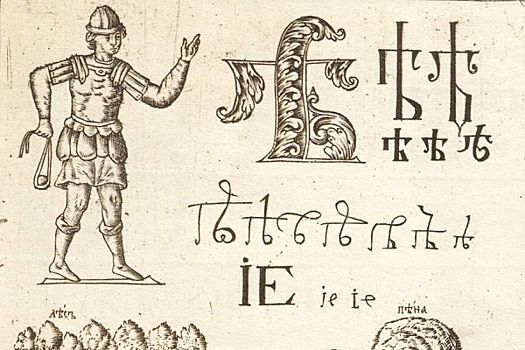 Ѣ Ѣ Ѣ
ѣ ѣ ѣ
ѣ ѣ ѣ ѣ ѣ ѣ ѣ
ІЕ іе іе
лѣсъ пѣна